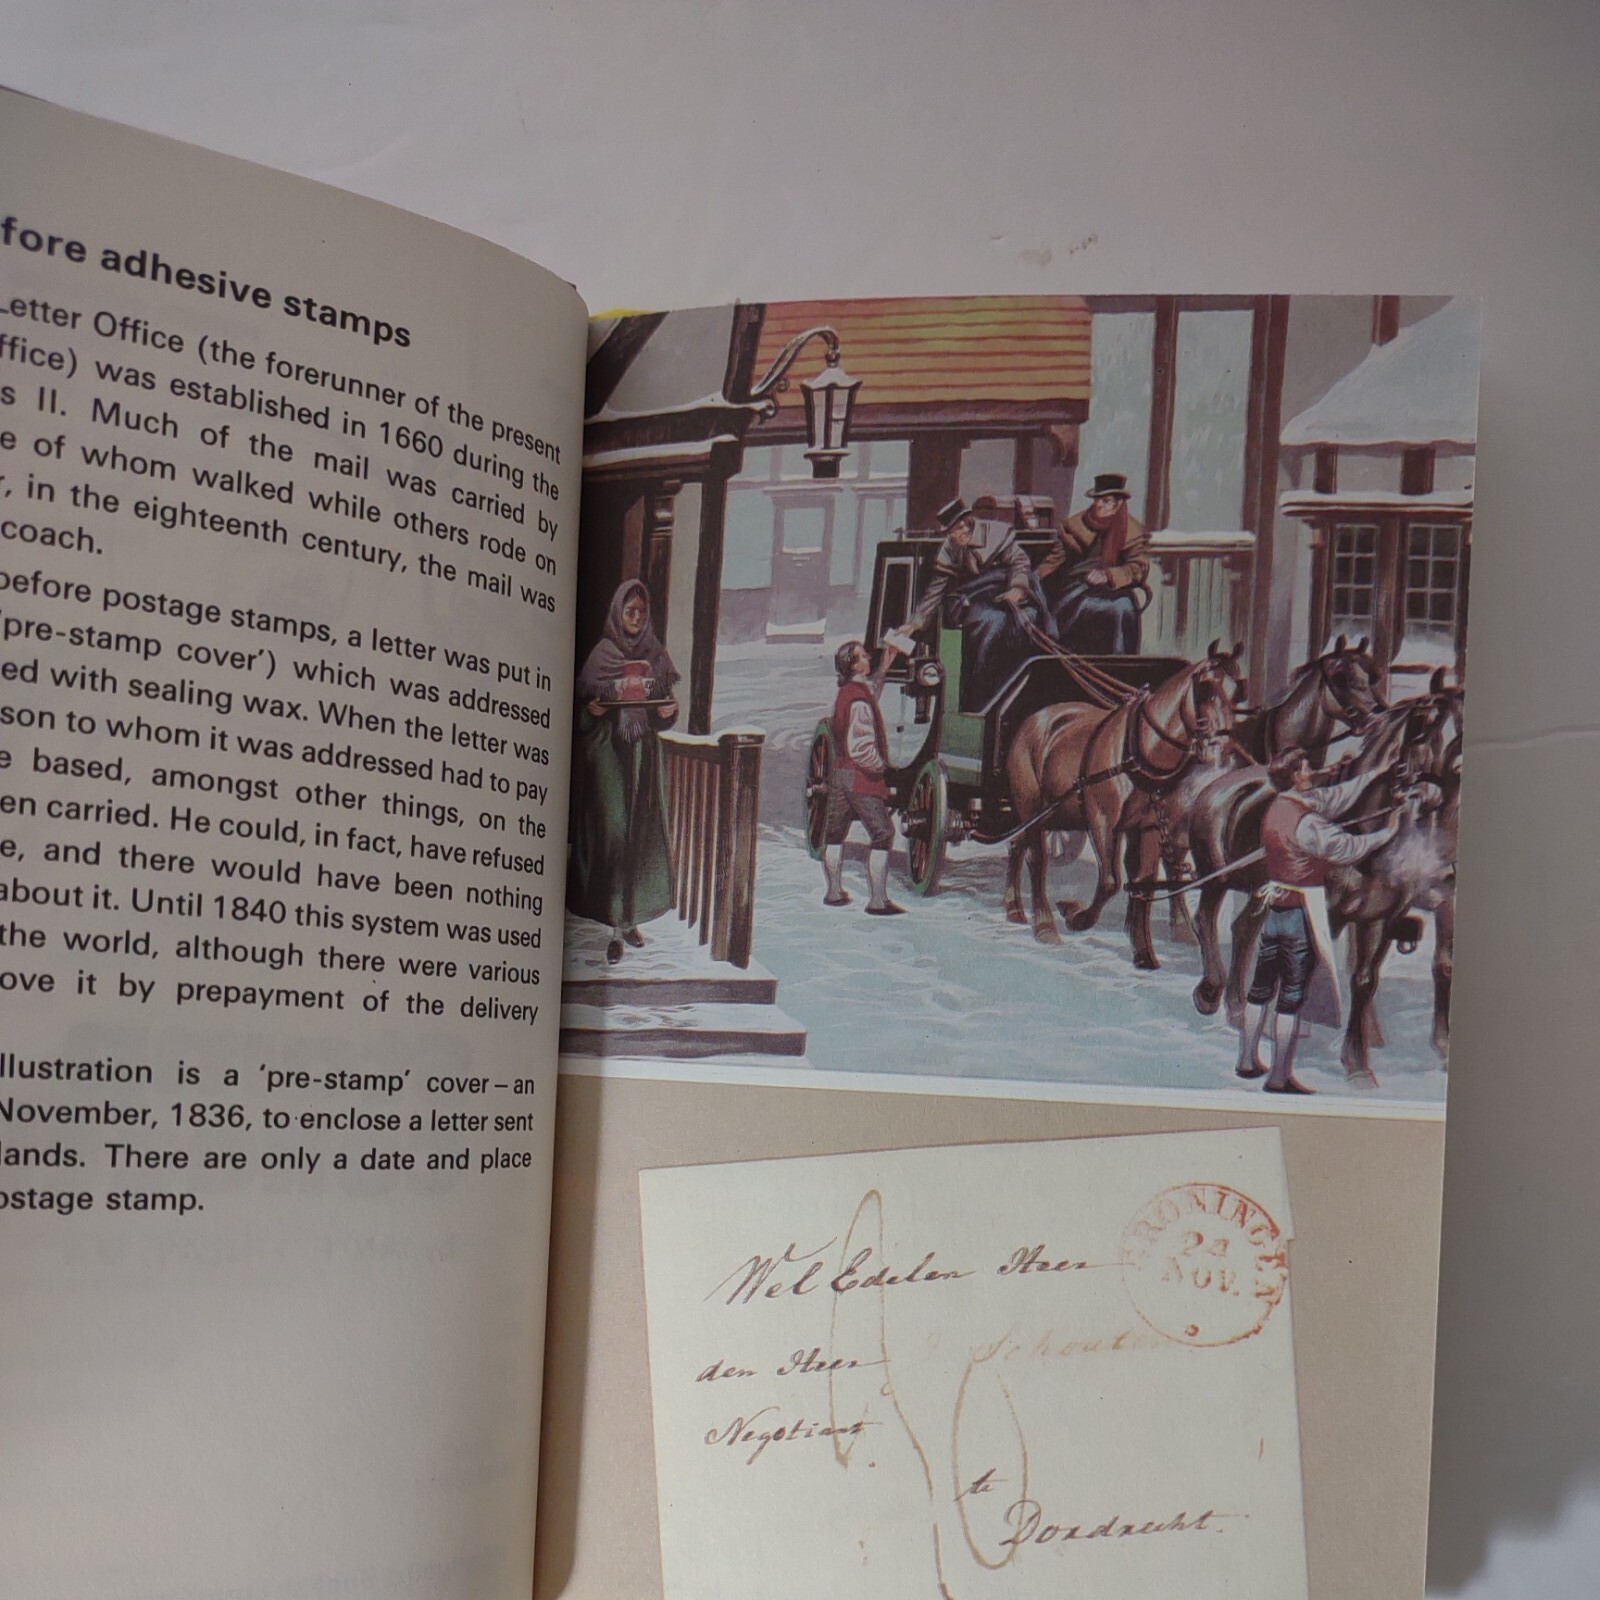 fore adhesive stamps
Letter Office (the forerunner of the present
ffice) was established in 1660 during the
s II. Much of the mail was carried by
e of whom walked while others rode on
r, in the eighteenth century, the mail was
coach.
before postage stamps, a letter was put in
'pre-stamp cover') which was addressed
ed with sealing wax. When the letter was
son to whom it was addressed had to pay
e based, amongst other things, on the
en carried. He could, in fact, have refused
e, and there would have been nothing
about it. Until 1840 this system was used
the world, although there were various
ove it by prepayment of the delivery
llustration is a 'pre-stamp' cover – an
November, 1836, to enclose a letter sent
lands. There are only a date and place
ostage stamp.
GRONINGEN
24
NOV.
Wel Edelen Heer
den Heer Schouten
Negotiant
te
Dordrecht.